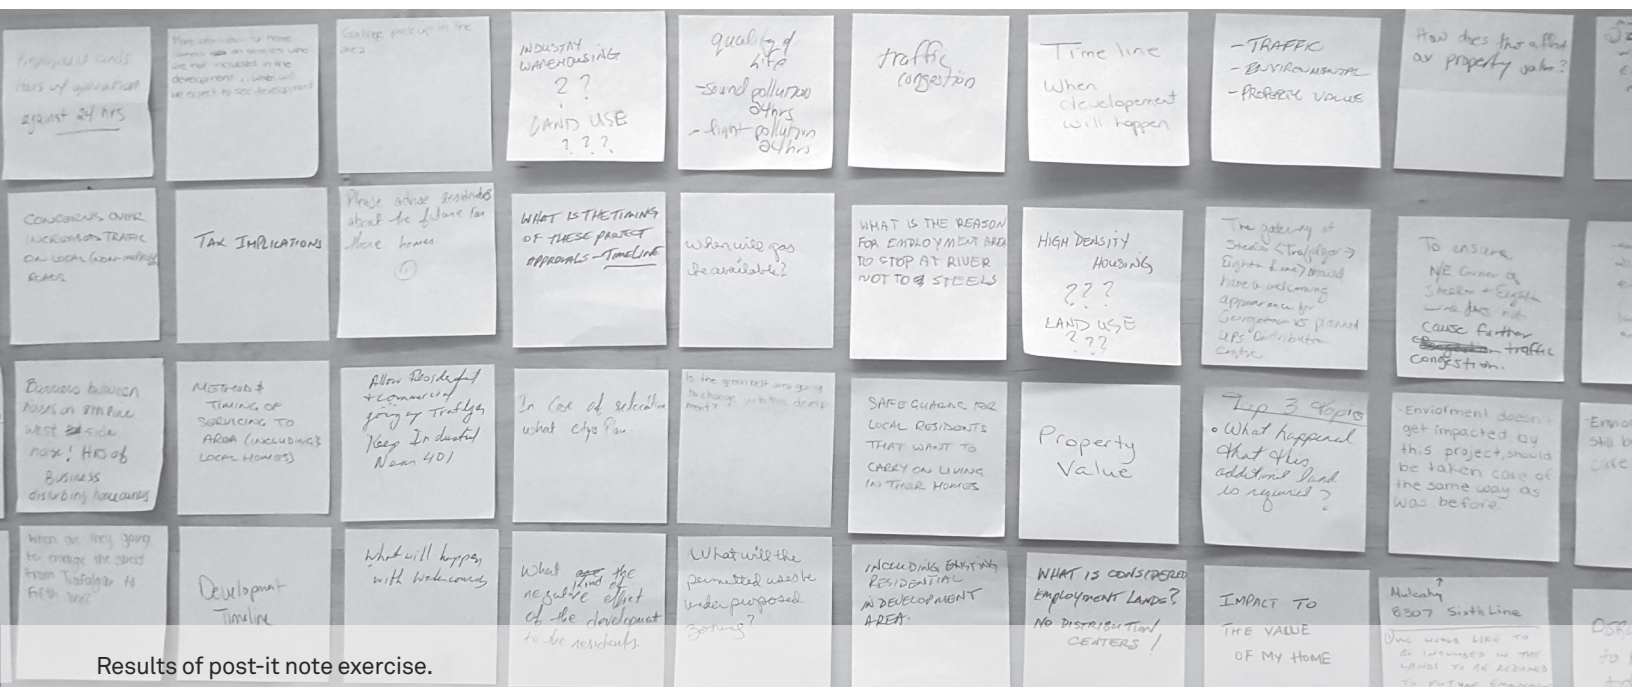 Employment lands
Hours of operation
against 24 hrs
More information for home
owners on streets who
are not included in the
development, when will
we expect to see development
Garbage pickup in the
area
INDUSTRY
WAREHOUSING
? ?
LAND USE
? ? ?
quality of
life
-sound pollution
24hrs
- light pollution
24hrs
traffic
congestion
Time line
When
developement
will happen
- TRAFFIC
- ENVIRONMENTAL
- PROPERTY VALUE
How does this affect
our property value?
CONCERNS OVER
INCREASED TRAFFIC
ON LOCAL
ROADS
TAX IMPLICATIONS
Please advise residents
about the future for
there homes.
WHAT IS THE TIMING
OF THESE PROJECT
APPROVALS - TIMELINE
When will gas
be available?
WHAT IS THE REASON
FOR EMPLOYMENT AREA
TO STOP AT RIVER
NOT TO STEELS
HIGH DENSITY
HOUSING
? ? ?
LAND USE
? ? ?
The gateway at
Steeles (Trafalgar →
Eighth Line) should
have a welcoming
appearance for
Georgetown vs planned
UPS Distribution
Centre
To ensure
N/E Corner of
Steeles + Eighth
Line does not
cause further
traffic
congestion.
Business between
houses on 8th line
west side
noise! Hrs of
Business
disturbing homeowners
METHOD &
TIMING OF
SERVICING TO
AREA (INCLUDING
LOCAL HOMES)
Allow Residential
+ Commercial
going by Trafalgar
Keep Industrial
Near 401
In Case of relocation
what citys Plan.
Is the green belt area going
to change with this develop-
ment?
SAFE GUARDS FOR
LOCAL RESIDENTS
THAT WANT TO
CARRY ON LIVING
IN THEIR HOMES
Property
Value
Top 3 Topic
• What happened
that this
additional land
is required?
- Enviorment doesn't
get impacted by
this project, should
be taken care of
the same way as
was before.
When are they going
to change the street
from Trafalgar to
Development
Timeline
What will happen
with
What kind of the
negative effect
of the development
to the residents.
What will the
permitted uses be
under purposed
zoning?
INCLUDING EXISTING
RESIDENTIAL
IN DEVELOPMENT
AREA.
WHAT IS CONSIDERED
EMPLOYMENT LANDS?
NO DISTRIBUTION
CENTERS!
IMPACT TO
THE VALUE
OF MY HOME
Mulcahy
8307 Sixth Line
WOULD LIKE TO
BE INCLUDED IN THE
LANDS TO BE REZONED
TO FUTURE
Results of post-it note exercise.